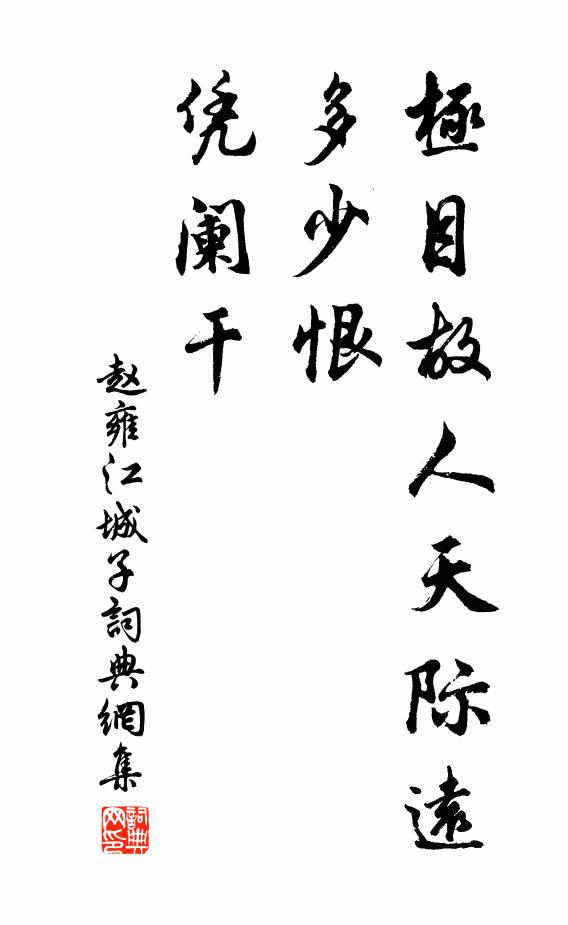 極目故人天际遠
多少恨
凭阑干
赵雍江城子詞典網集
詞典网印